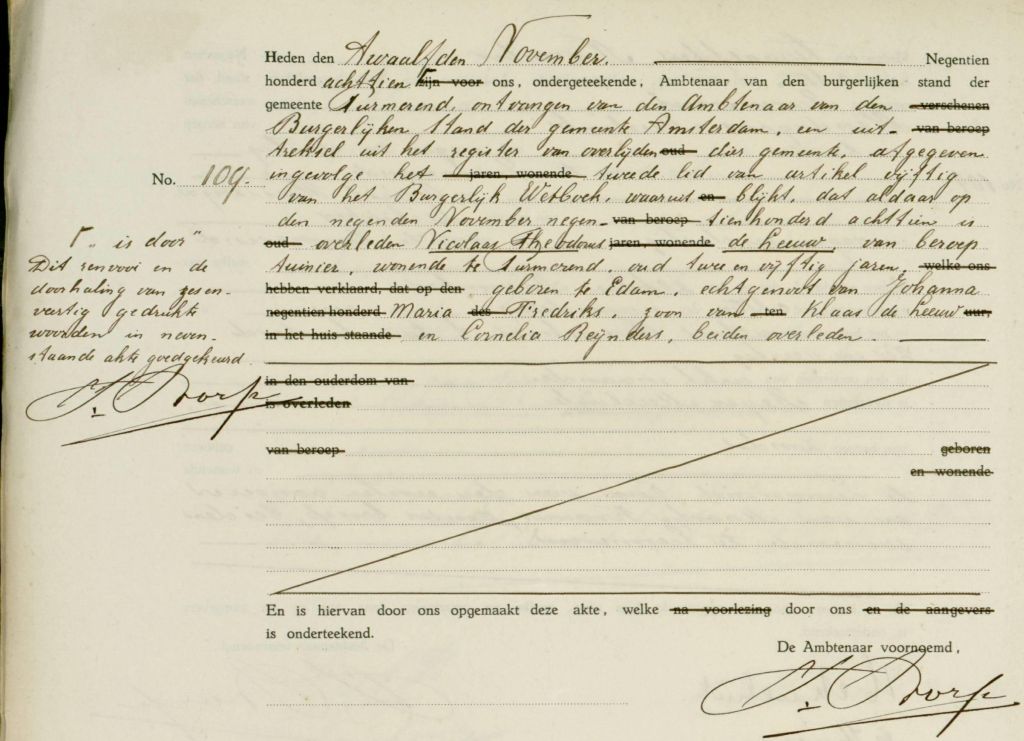 Heden den Twaalfden November. Negentien
honderd achttien Γ zijn voor ons, ondergeteekende, Ambtenaar van den burgerlijken stand der
gemeente Purmerend, ontvangen van den Ambtenaar van den verschenen
Burgerlijken Stand der gemeente Amsterdam, een uit- van beroep
treksel uit het register van overlijden oud dier gemeente, afgegeven
No. 109. ingevolge het jaren, wonende tweede lid van artikel vijftig
van het Burgerlijk Wetboek, waaruit en blijkt, dat aldaar op
den negenden November negen- van beroep tienhonderd achttien is
oud overleden Nicolaas Theodorus jaren, wonende de Leeuw, van beroep
tuinier, wonende te Purmerend, oud twee en vijftig jaren, welke ons
hebben verklaard, dat op den geboren te Edam, echtgenoot van Johanna
negentien honderd Maria des Fredriks, zoon van ten Klaas de Leeuw uur,
in het huis staande en Cornelia Reijnders, beiden overleden.
Γ „is door"
Dit renvooi en de
doorhaling van zesen-
veertig gedrukte
woorden in neven-
staande akte goedgekeurd.
in den ouderdom van
is overleden
van beroep geboren
en wonende
En is hiervan door ons opgemaakt deze akte, welke na voorlezing door ons en de aangevers
is onderteekend.
De Ambtenaar voornoemd,